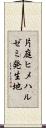 片庭ヒメハル
ゼミ発生地